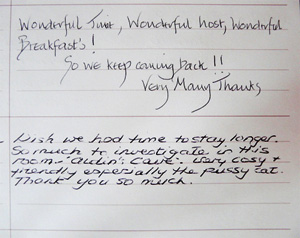 Wonderful Time, Wonderful host, Wonderful
Breakfast's!
So we keep coming back!!
Very Many Thanks
Wish we had time to stay longer.
So much to investigate in this
room - Cave'. Very cosy +
friendly especially the pussy cat.
Thank you so much.